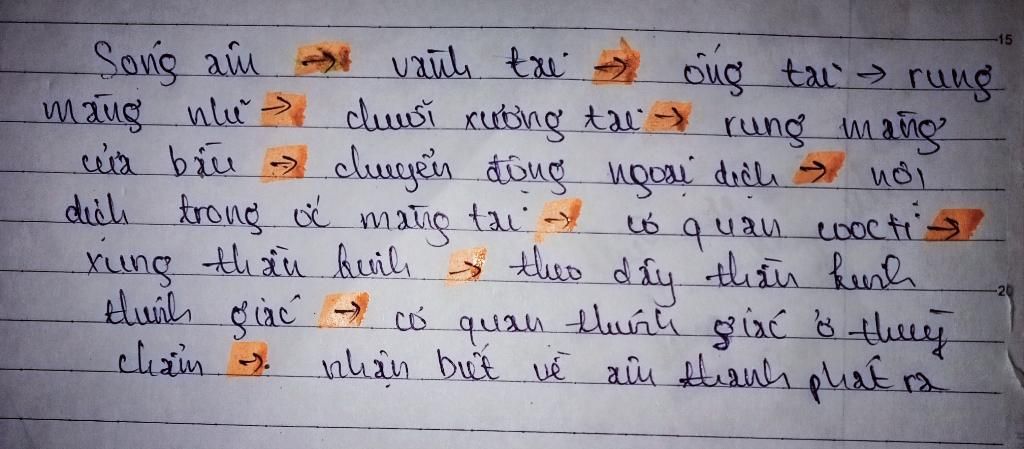 Sóng âm → vành tai → ống tai → rung
màng nhĩ → chuỗi xương tai → rung màng
cửa bầu → chuyển động ngoại dịch → nội
dịch trong ốc màng tai → cơ quan coocti →
xung thần kinh → theo dây thần kinh
thính giác → cơ quan thính giác ở thùy
chẩm → nhận biết về âm thanh phát ra
15
20